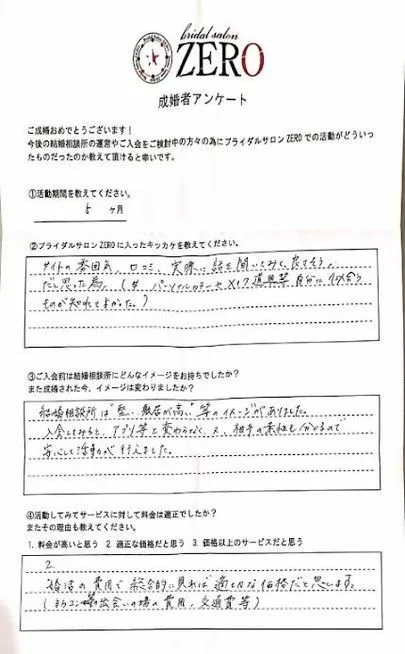 bridal salon
ZERO
成婚者アンケート
ご成婚おめでとうございます！
今後の結婚相談所の運営やご入会をご検討中の方々の為にブライダルサロンZEROでの活動がどういっ
たものだったのか教えて頂けると幸いです。
①活動期間を教えてください。
5 ヶ月
②ブライダルサロンZEROに入ったキッカケを教えてください。
サイトの雰囲気、口コミ、実際に話を聞いてみて良さそう
だと思った為。(パーソナルカラーやメイク道具等自分に似合う
ものが知れてよかった。)
③ご入会前は結婚相談所にどんなイメージをお持ちでしたか？
また成婚された今、イメージは変わりましたか？
結婚相談所は"堅い、敷居が高い"等のイメージがありました。
入会してみると、アプリ等と変わらなく、又、相手の素性も分かるので
安心して活動が行えました。
④活動してみてサービスに対して料金は適正でしたか？
またその理由も教えてください。
1. 料金が高いと思う 2. 適正な価格だと思う 3. 価格以上のサービスだと思う
2
婚活の費用で総合的に見れば適切な価格だと思います。
(街コン等出会いの場の費用、交通費等)